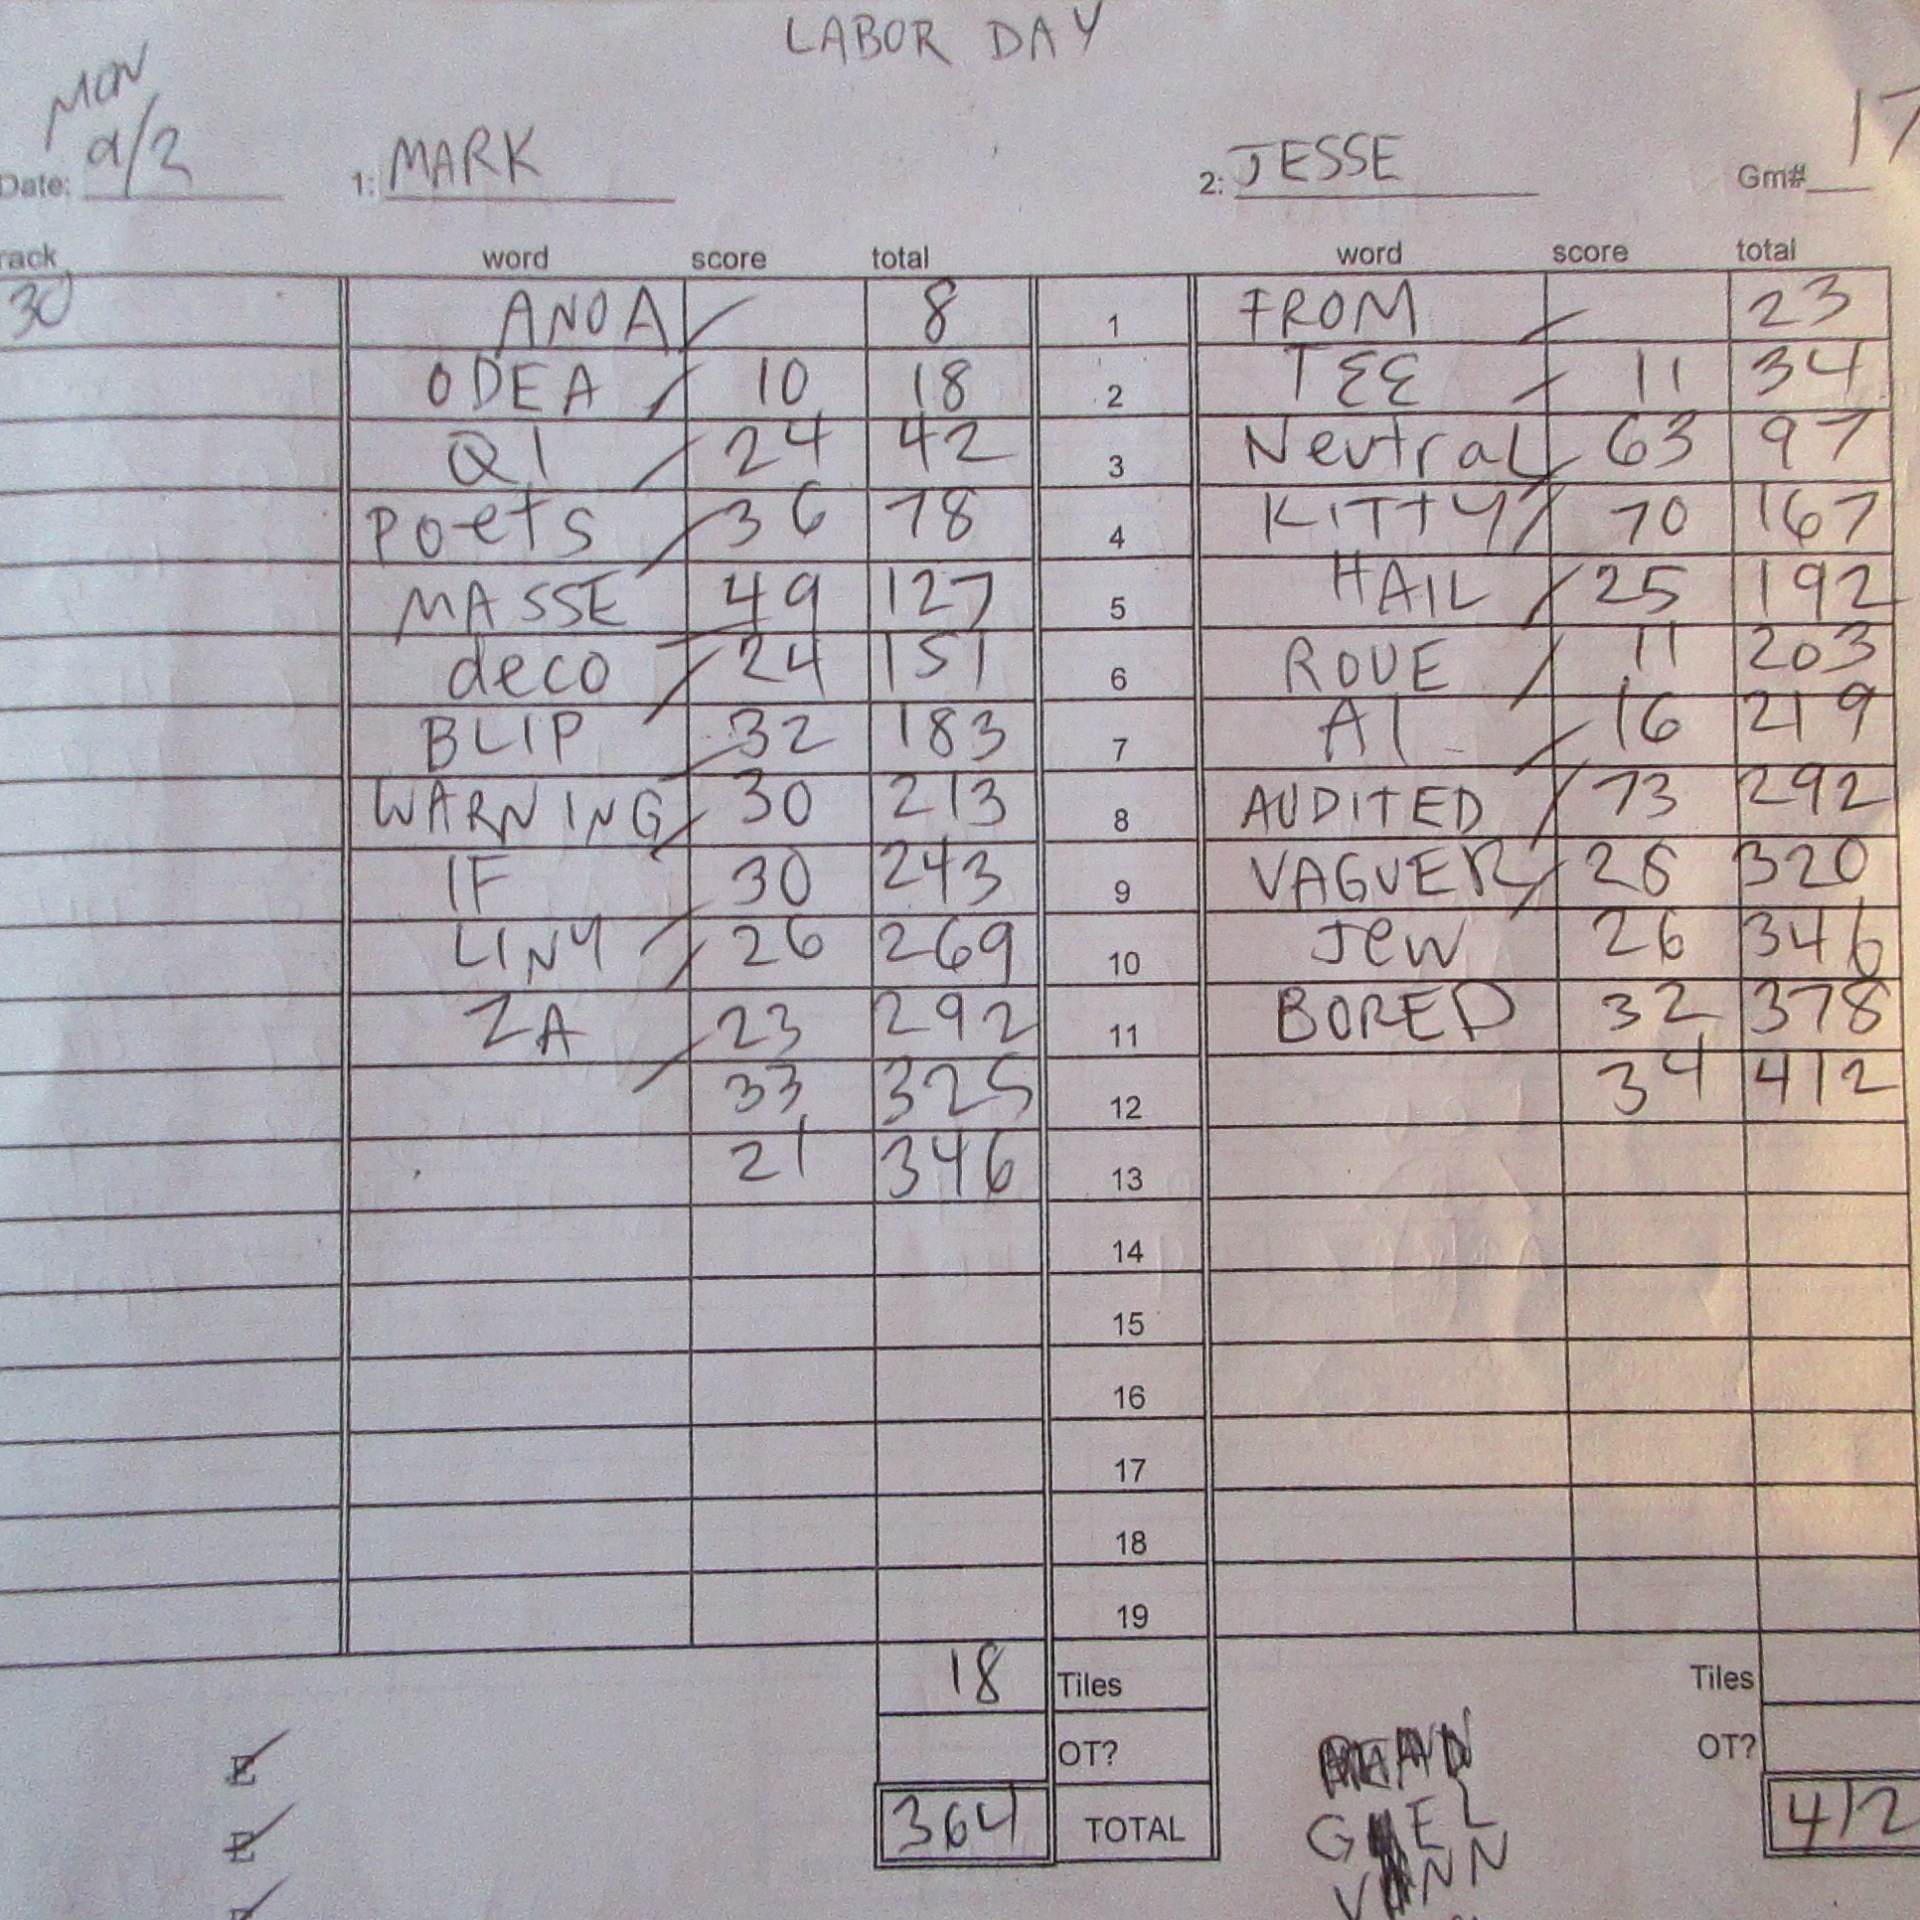 LABOR DAY
MON
Date: 9/2 1: MARK 2: JESSE Gm# 17
rack word score total word score total
30 ANOA 8 1 FROM 23
ODEA 10 18 2 TEE 11 34
QI 24 42 3 Neutral 63 97
Poets 36 78 4 KITTY 70 167
MASSE 49 127 5 HAIL 25 192
deco 24 151 6 ROUE 11 203
BLIP 32 183 7 AI 16 219
WARNING 30 213 8 AUDITED 73 292
IF 30 243 9 VAGUER 28 320
LINY 26 269 10 Jew 26 346
ZA 23 292 11 BORED 32 378
33 325 12 34 412
21 346 13
14
15
16
17
18
19
18 Tiles Tiles
E OT? OT?
364 TOTAL 412
E